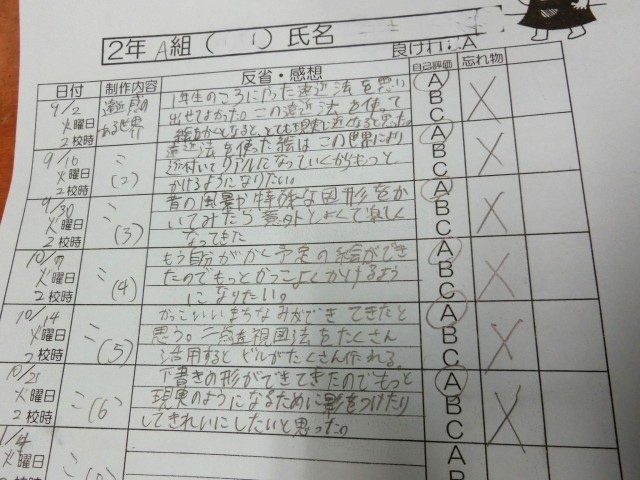 2年 A組( 1)氏名
良ければA
日付 制作内容 反省・感想 自己評価 忘れ物
9/2 火曜日 2校時
遠近感のある世界
1年生のころにやった遠近法を思い
出せてよかった。この遠近法を使って
絵をかくとなると、とても現実に近くなると思った。
A B C
9/16 火曜日 2校時
(2)
遠近法を使った絵はこの世界により
近付いてリアルになっていくからもっと
かけるようになりたい。
A B C
9/30 火曜日 2校時
(3)
昔の風景や特殊な図形をか
いてみたら意外とよくて楽しく
なってきた
A B C
10/7 火曜日 2校時
(4)
もう自分がかく予定の絵ができ
たのでもっとかっこよくかけるよう
になりたい。
A B C
10/14 火曜日 2校時
(5)
かっこいいまちなみができてきたと
思う。二点透視図法をたくさん
活用するとビルがたくさん作れる。
A B C
10/21 火曜日 2校時
(6)
下書きの形ができてきたのでもっと
現実のようになるために影をつけたり
してきれいにしたいと思った。
A B C
火曜日 2校時
A B